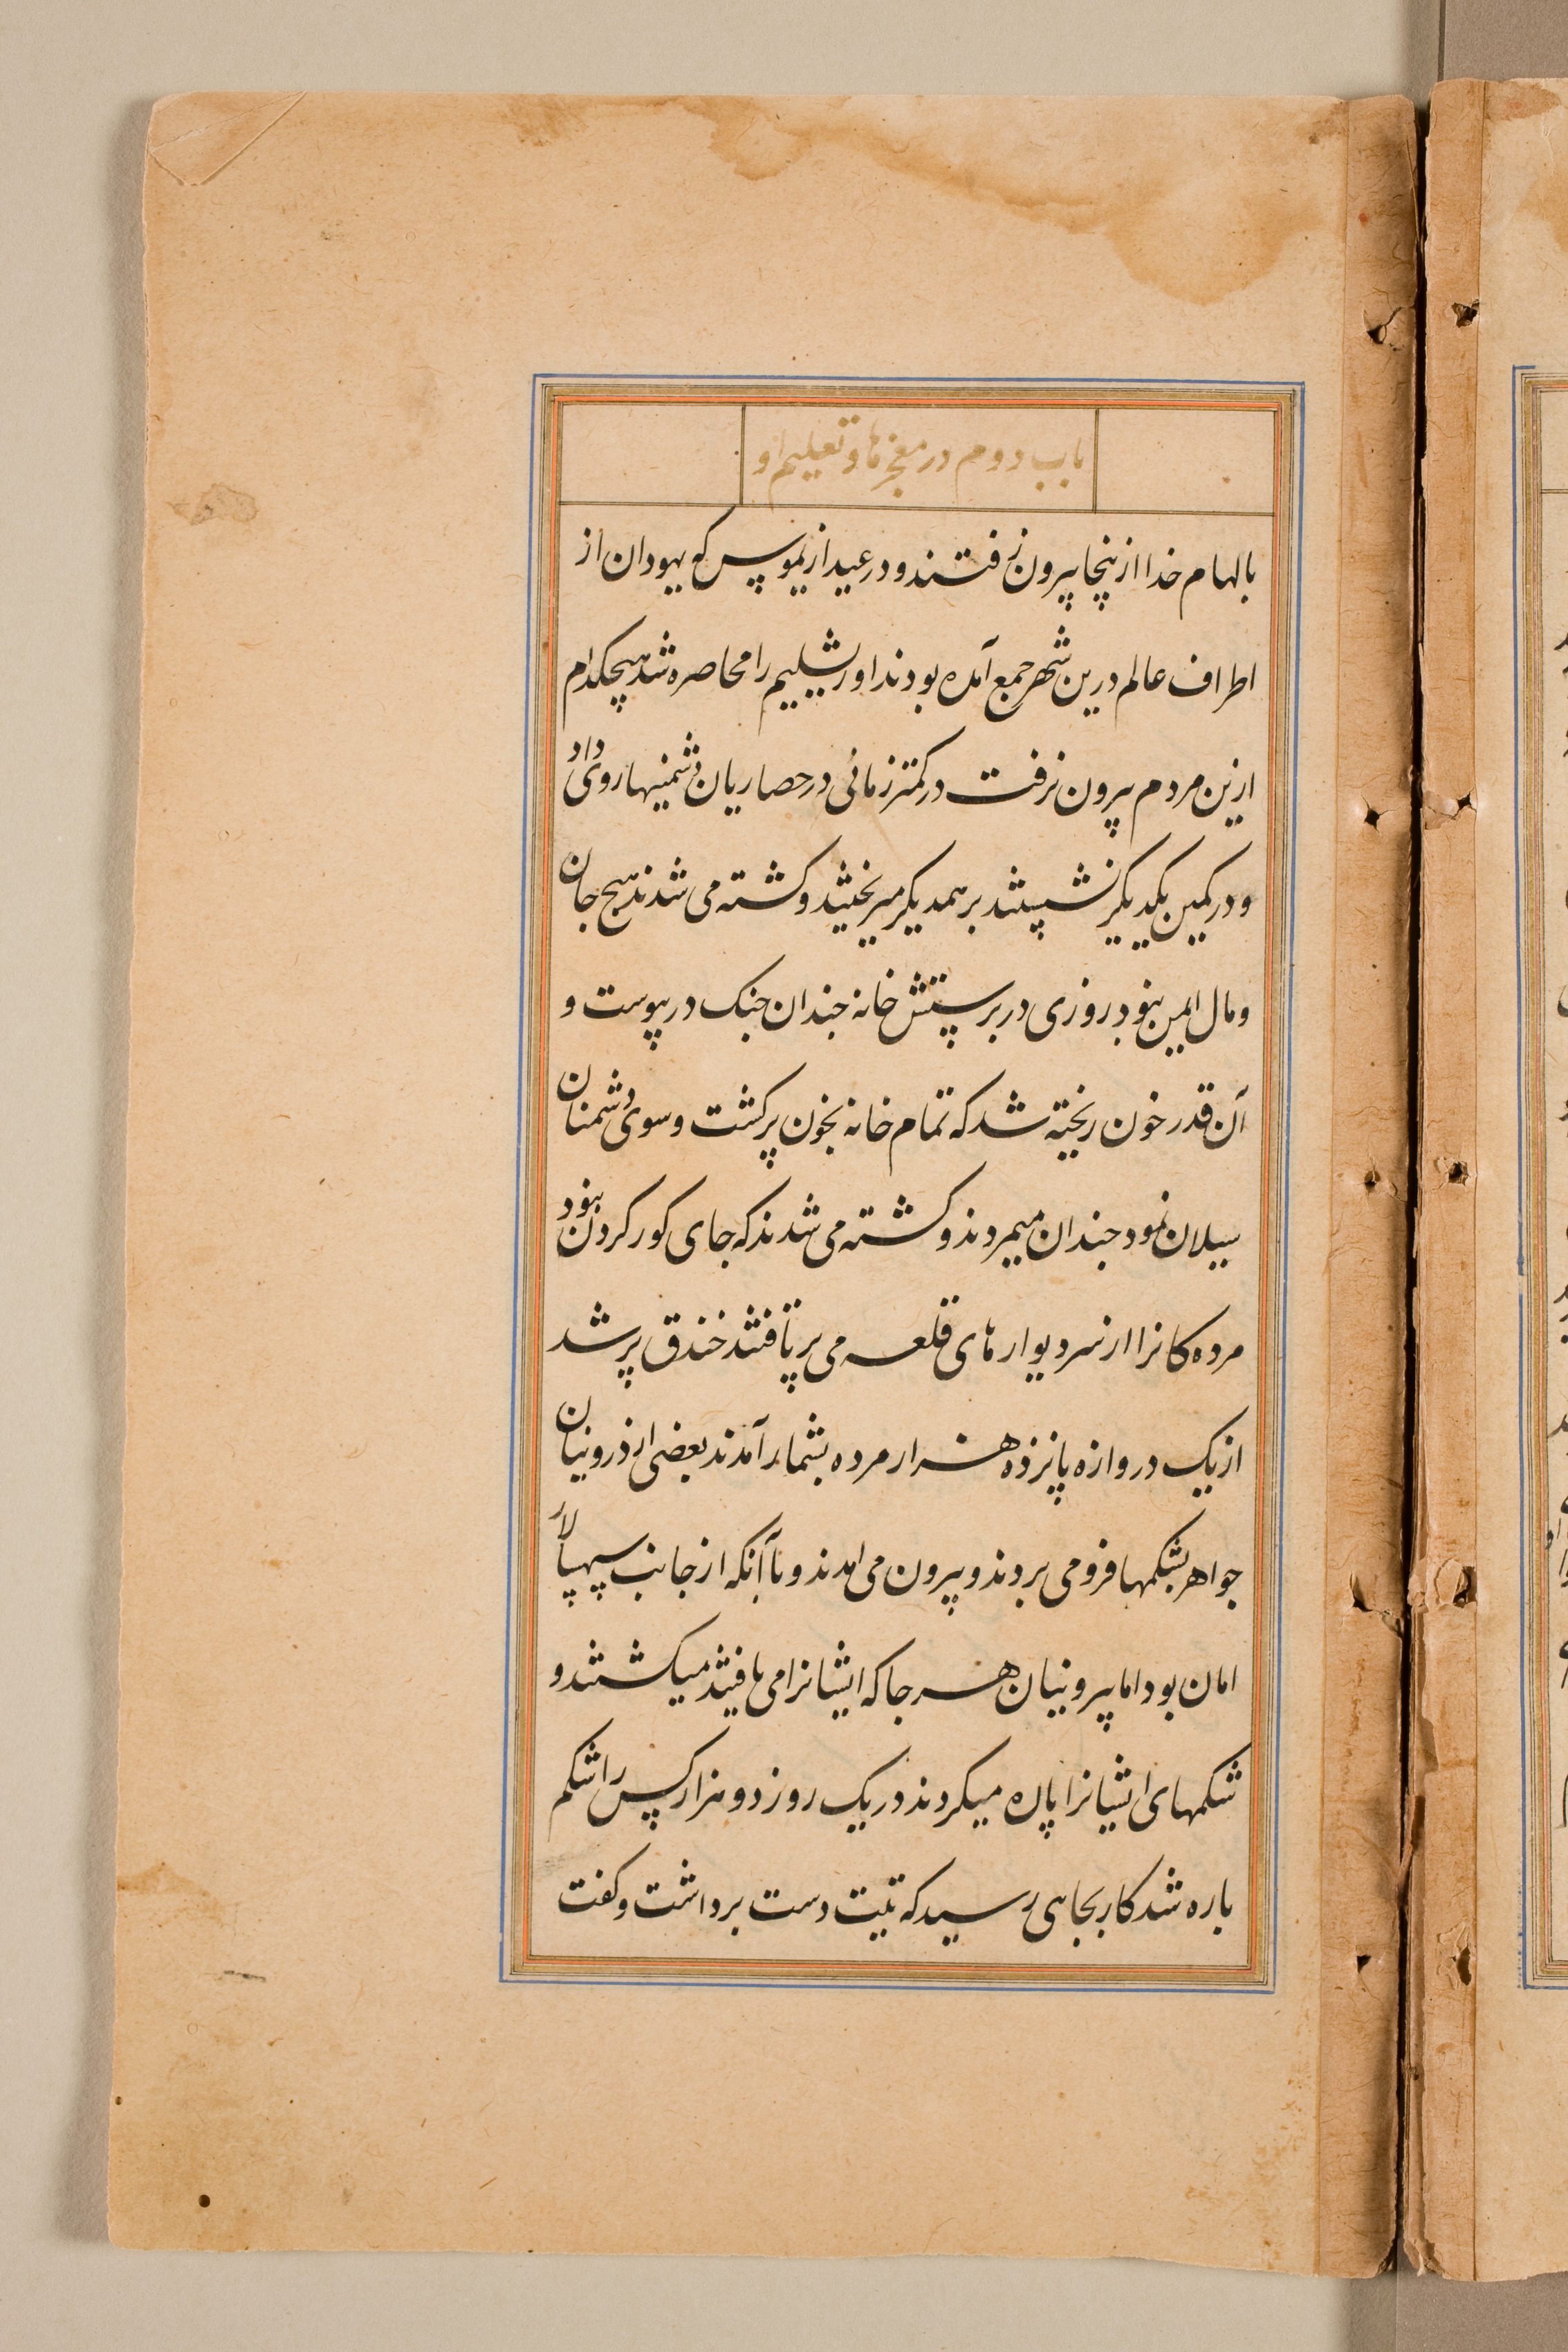 باب دوم در معجزها و تعلیم او
بالهام خدا ازینجا بیرون رفتند و در عید ازیموس که یهودان از
اطراف عالم درین شهر جمع آمده بودند اورشلیم را محاصره شد هیچکدام
ازین مردم بیرون نرفت در کمتر زمانی در حصاریان دشمنیها روی داد
و در کمین یکدیکر نشستند بر همدیکر میریختند و کشته می شدند هیچ جان
و مال ایمن نبود روزی در پرستش خانه جندان جنک درپیوست و
آن قدر خون ریخته شد که تمام خانه بخون پر کشت و سوی دشمنان
سیلان نمود جندان میمردند و کشته می شدند که جای کور کردن نبود
مرده کانرا از سر دیوارهای قلعه می برتافتند خندق پر شد
از یک دروازه پانزده هزار مرده بشمار آمدند بعضی از درونیان
جواهر بشکمها فرو می بردند و بیرون می امدند و باآنکه از جانب سپهسالار
امان بود اما بیرونیان هر جا که ایشانرا می یافتند میکشتند و
شکمهای ایشانرا پاره میکردند در یک روز دو هزار کس را شکم
باره شد کار بجایی رسید که تیت دست برداشت و کفت